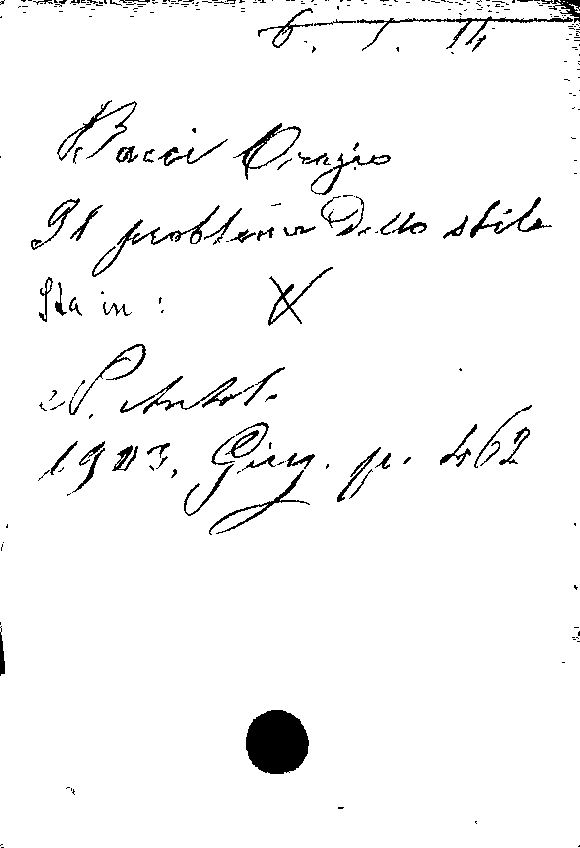 6. 1. 14
Bacci Orazio
Il problema dello stile
Sta in : X
N. Antol.
1903, Giug. p. 462